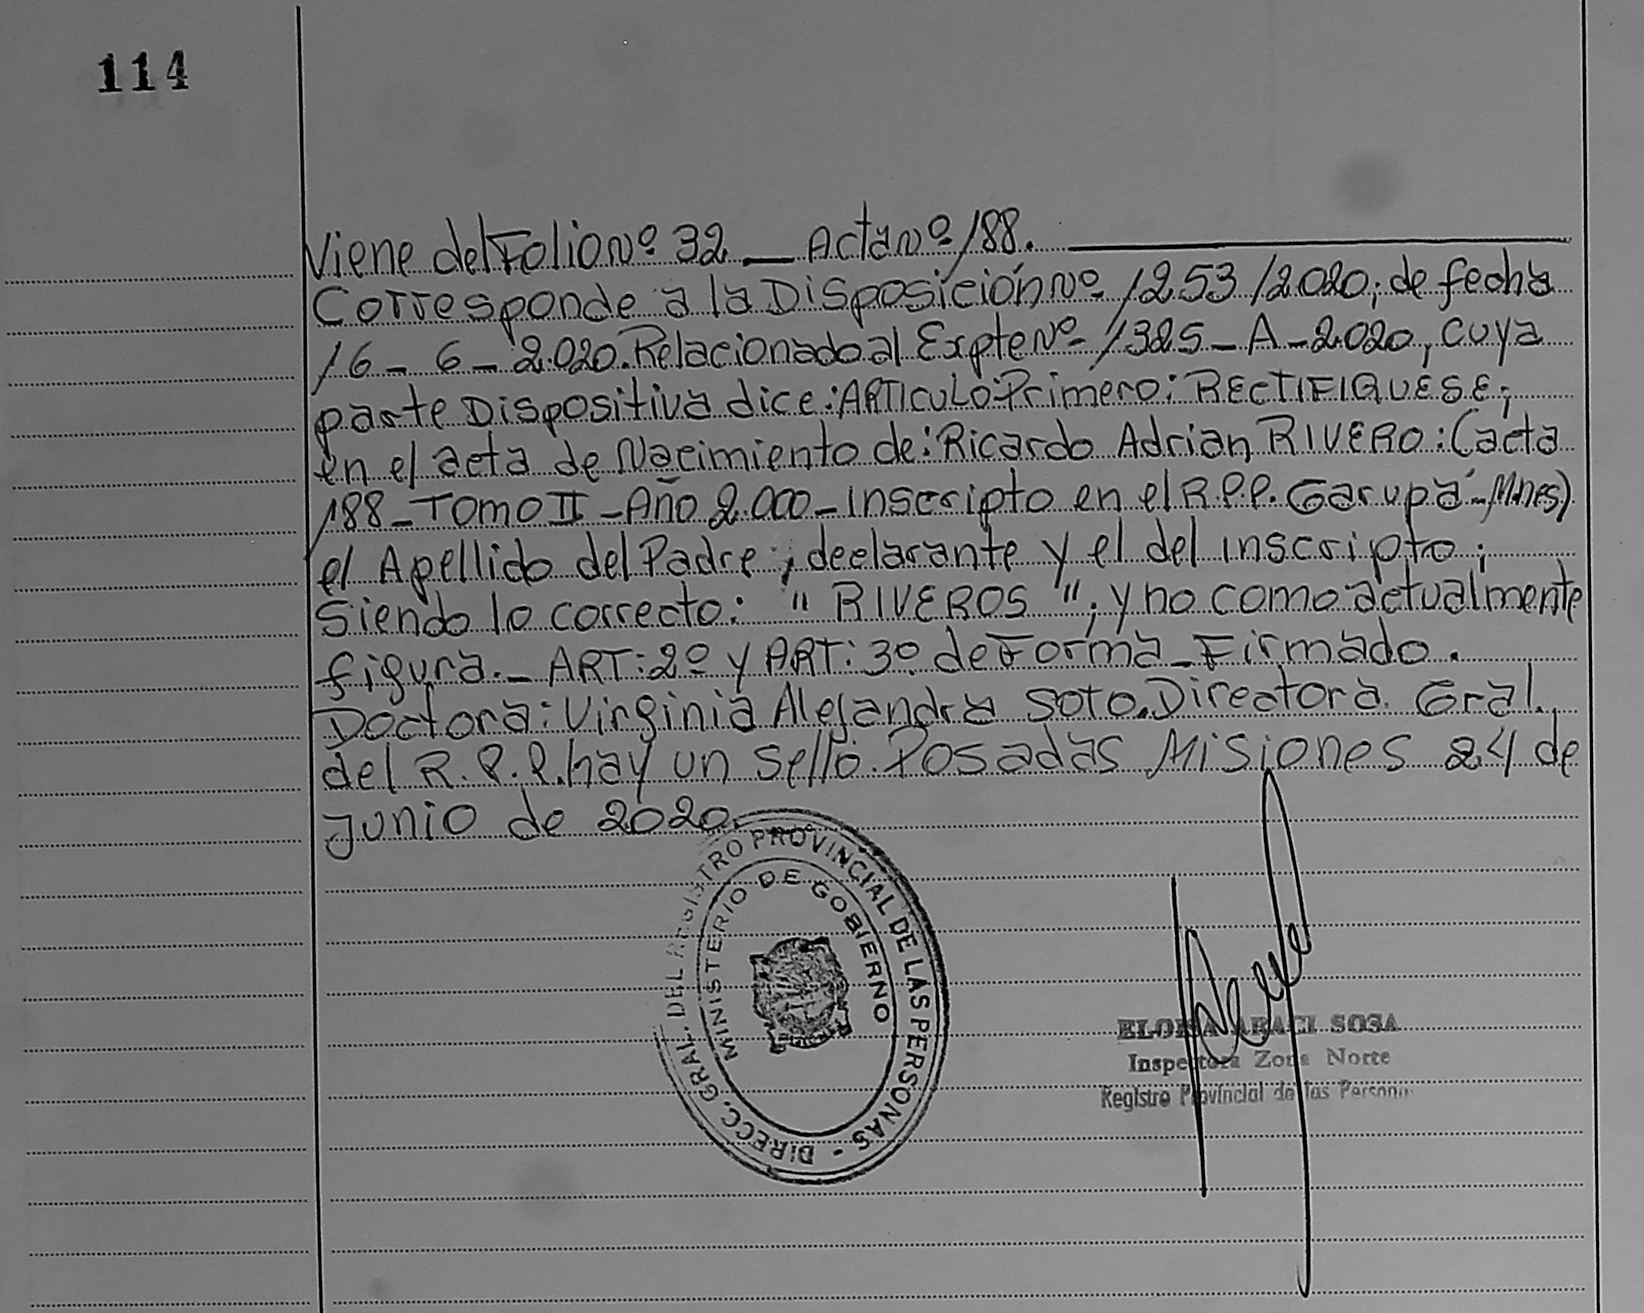 114
Viene del Folio Nº 32 _ Acta nº 188.
Corresponde a la Disposición Nº 1253/2020; de fecha
16 - 6 - 2.020. Relacionado al Expte Nº 1325 - A - 2020, cuya
parte Dispositiva dice: ARTICULO: Primero: RECTIFIQUESE;
en el acta de Nacimiento de: Ricardo Adrian RIVERO: (acta
188 - TOMO II - Año 2.000 - inscripto en el R.P.P. Garupá - Mnes)
el Apellido del Padre, declarante y el del inscripto;
Siendo lo correcto: "RIVEROS"; y no como actualmente
figura. - ART: 2º y ART: 3º de Forma - Firmado.
Doctora: Virginia Alejandra Soto. Directora. Gral.
del R.P.P. hay un sello. Posadas Misiones 24 de
junio de 2020.
DIRECC. GRAL. DEL REGISTRO PROVINCIAL DE LAS PERSONAS -
MINISTERIO DE GOBIERNO
ELOISA ARACI SOSA
Inspectora Zona Norte
Registro Provincial de las Personas